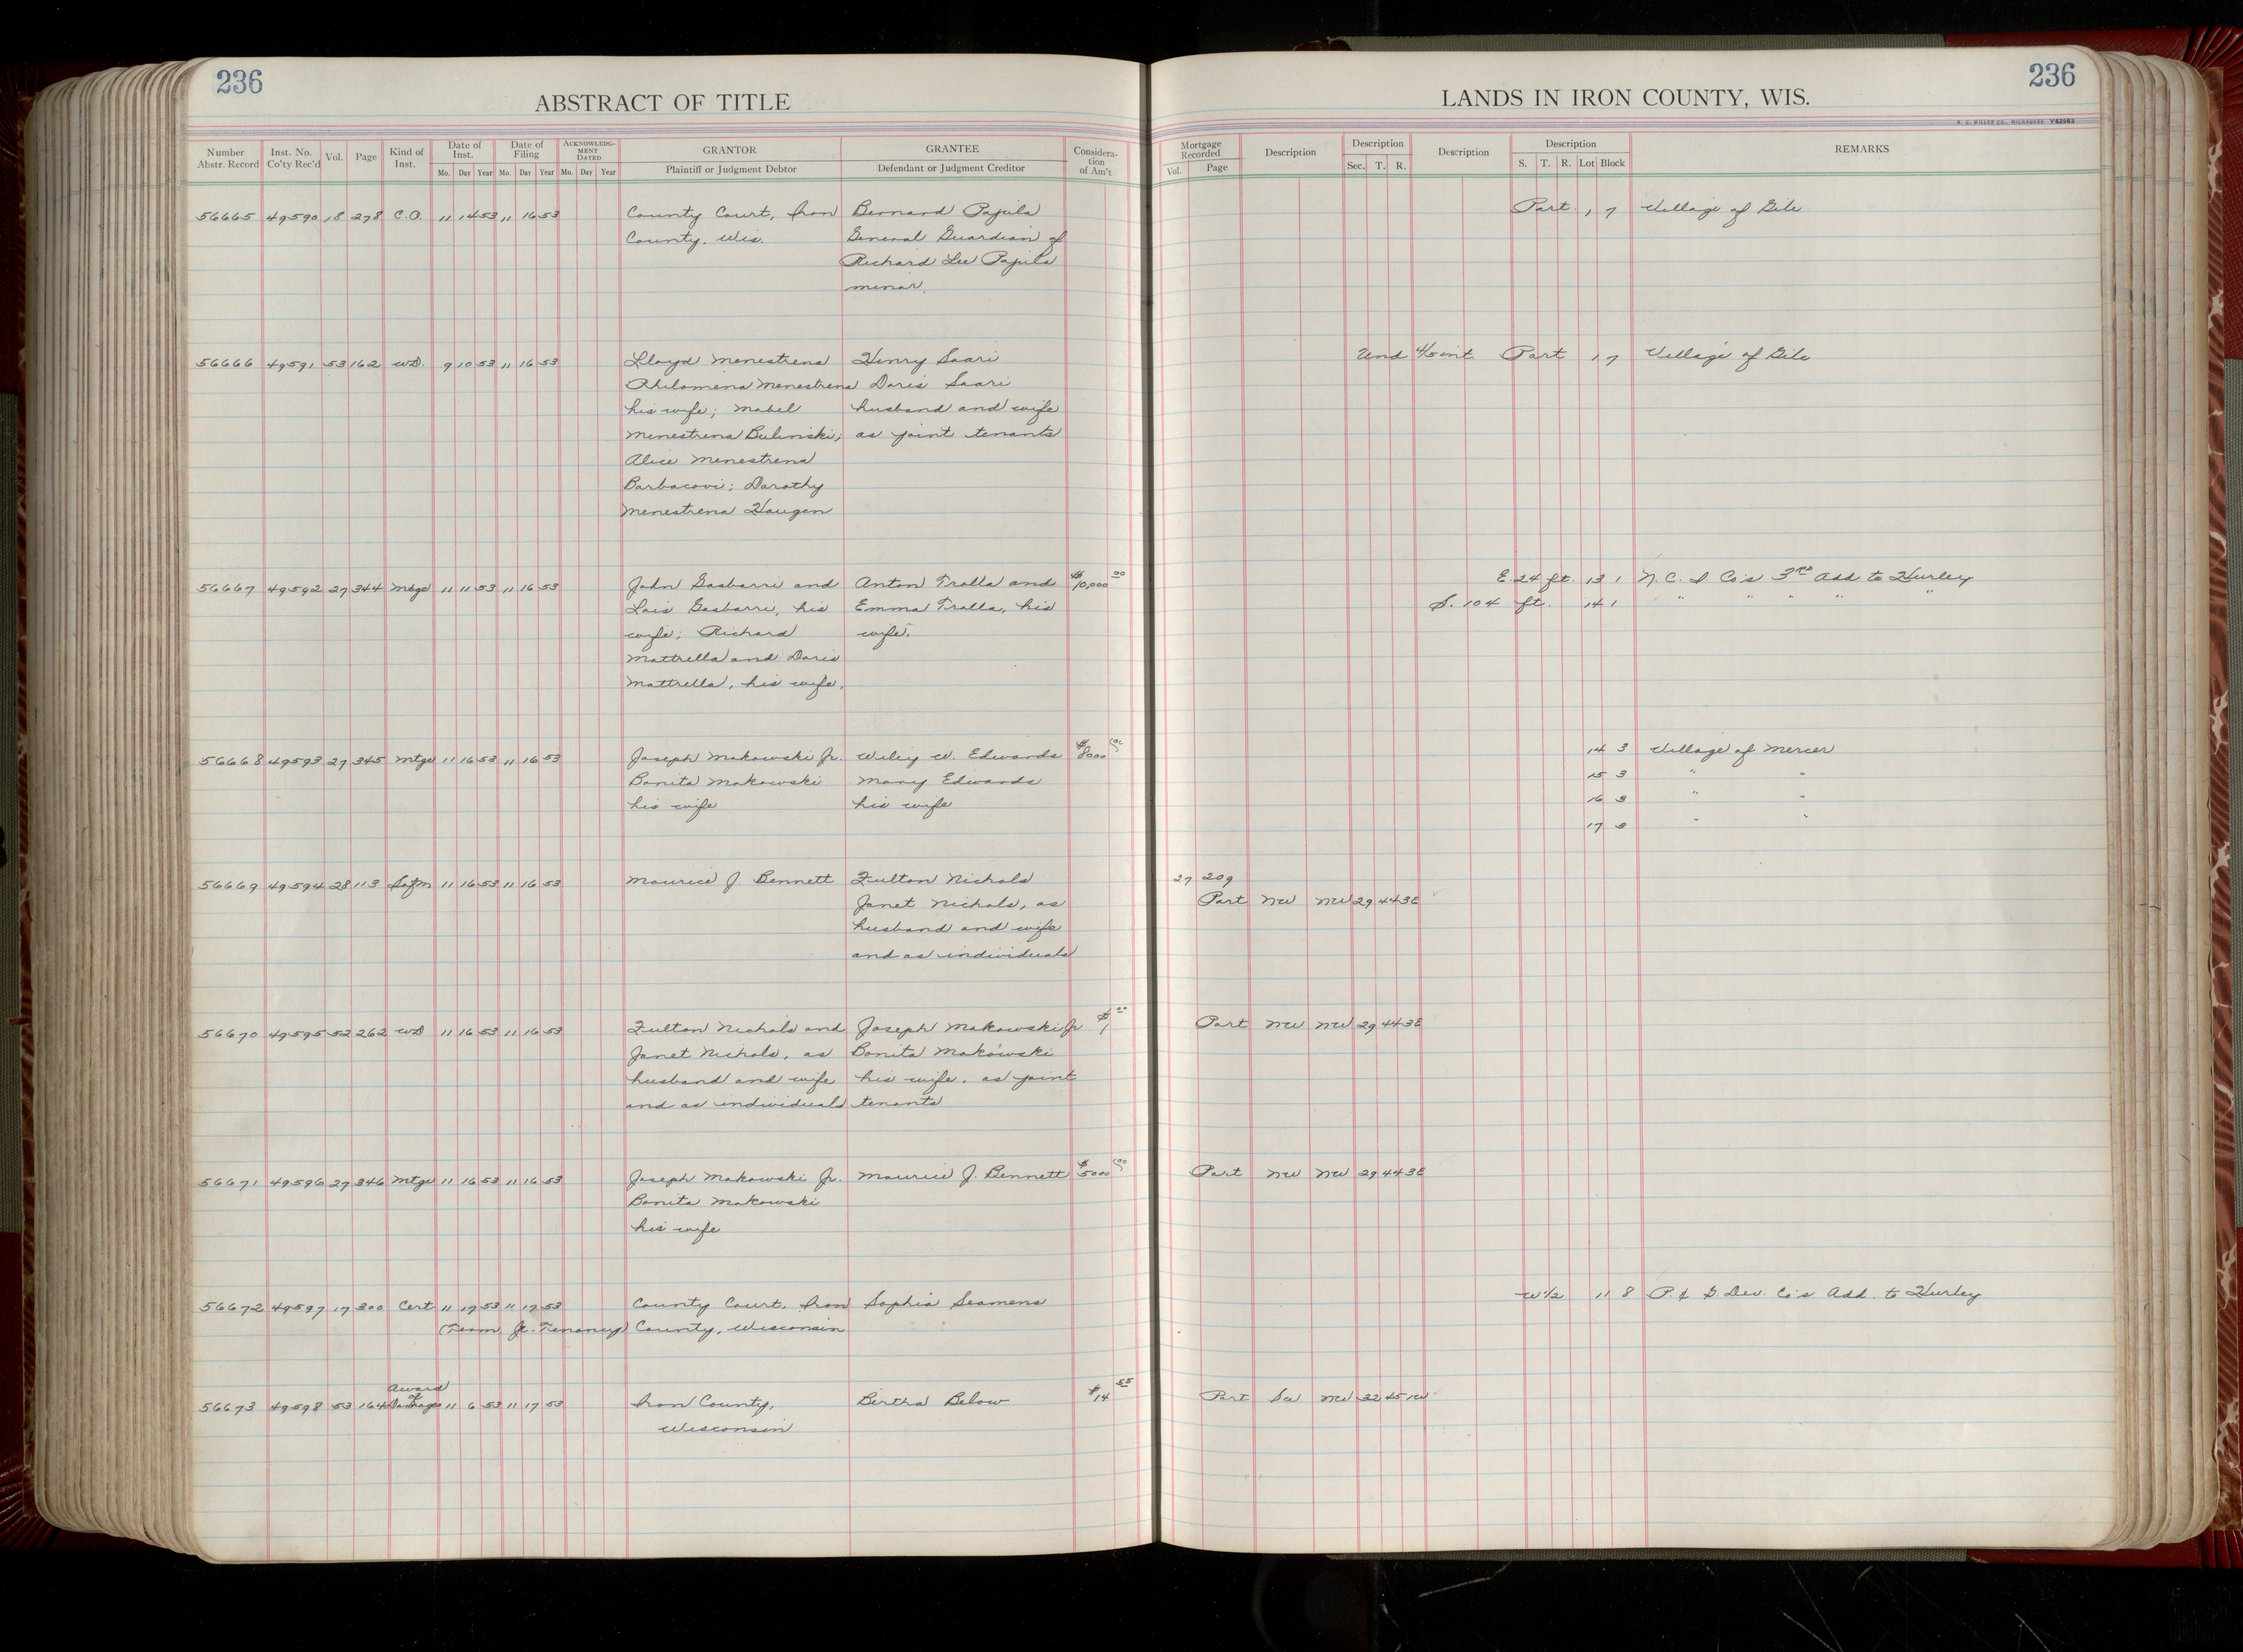 236
ABSTRACT OF TITLE
LANDS IN IRON COUNTY, WIS.
236
H. C. MILLER CO., MILWAUKEE Y62063
Number Abstr. Record | Inst. No. Co'ty Rec'd | Vol. | Page | Kind of Inst. | Date of Inst. Mo. Day Year | Date of Filing Mo. Day Year | ACKNOWLEDGMENT DATED Mo. Day Year | GRANTOR Plaintiff or Judgment Debtor | GRANTEE Defendant or Judgment Creditor | Consideration of Am't | Mortgage Recorded Vol. Page | Description | Description Sec. T. R. | Description | Description S. T. R. Lot Block | REMARKS
56665 49590 18 278 C.O. 11 14 53 11 16 53 County Court, Iron Bernard Pajula Part 1 7 Village of Gile
County, Wis. General Guardian of
Richard Lee Pajula
minor.
56666 49591 53 162 WD. 9 10 53 11 16 53 Lloyd Menestrena Henry Saari Und 4/5 int Part 1 7 Village of Gile
Philomena Menestrena Doris Saari
his wife; Mabel husband and wife
Menestrena Bulinski; as joint tenants
Alice Menestrena
Barbacovi; Dorothy
Menestrena Haugen
56667 49592 27 344 Mtge 11 11 53 11 16 53 John Gasbarri and Anton Tralla and $10,000 00 E. 24 ft. 13 1 N. C. I. Co's 3rd Add to Hurley
Lois Gasbarri, his Emma Tralla, his S. 104 ft. 14 1 " " " " "
wife; Richard wife.
Mattrella and Doris
Mattrella, his wife.
56668 49593 27 345 Mtge 11 16 53 11 16 53 Joseph Makowski Jr. Wiley W. Edwards $8000 00 14 3 Village of Mercer
Bonita Makowski Mary Edwards 15 3 " "
his wife his wife 16 3 " "
17 3 " "
56669 49594 28 113 Satfm 11 16 53 11 16 53 Maurice J. Bennett Fulton Nichols 27 209
Janet Nichols, as Part NW NW 29 44 3E
husband and wife
and as individuals
56670 49595 52 262 WD 11 16 53 11 16 53 Fulton Nichols and Joseph Makowski Jr $1 00 Part NW NW 29 44 3E
Janet Nichols, as Bonita Makowski
husband and wife his wife, as joint
and as individuals tenants
56671 49596 27 346 Mtge 11 16 53 11 16 53 Joseph Makowski Jr. Maurice J. Bennett $5000 00 Part NW NW 29 44 3E
Bonita Makowski
his wife
56672 49597 17 300 Cert 11 17 53 11 17 53 County Court, Iron Sophia Seamens W 1/2 11 8 P. & G. Dev. Co's Add. to Hurley
(Term Jt. Tenancy) County, Wisconsin
56673 49598 53 164 Award of Damages 11 6 53 11 17 53 Iron County, Bertha Below $14 55 Part SW NW 22 45 1W
Wisconsin